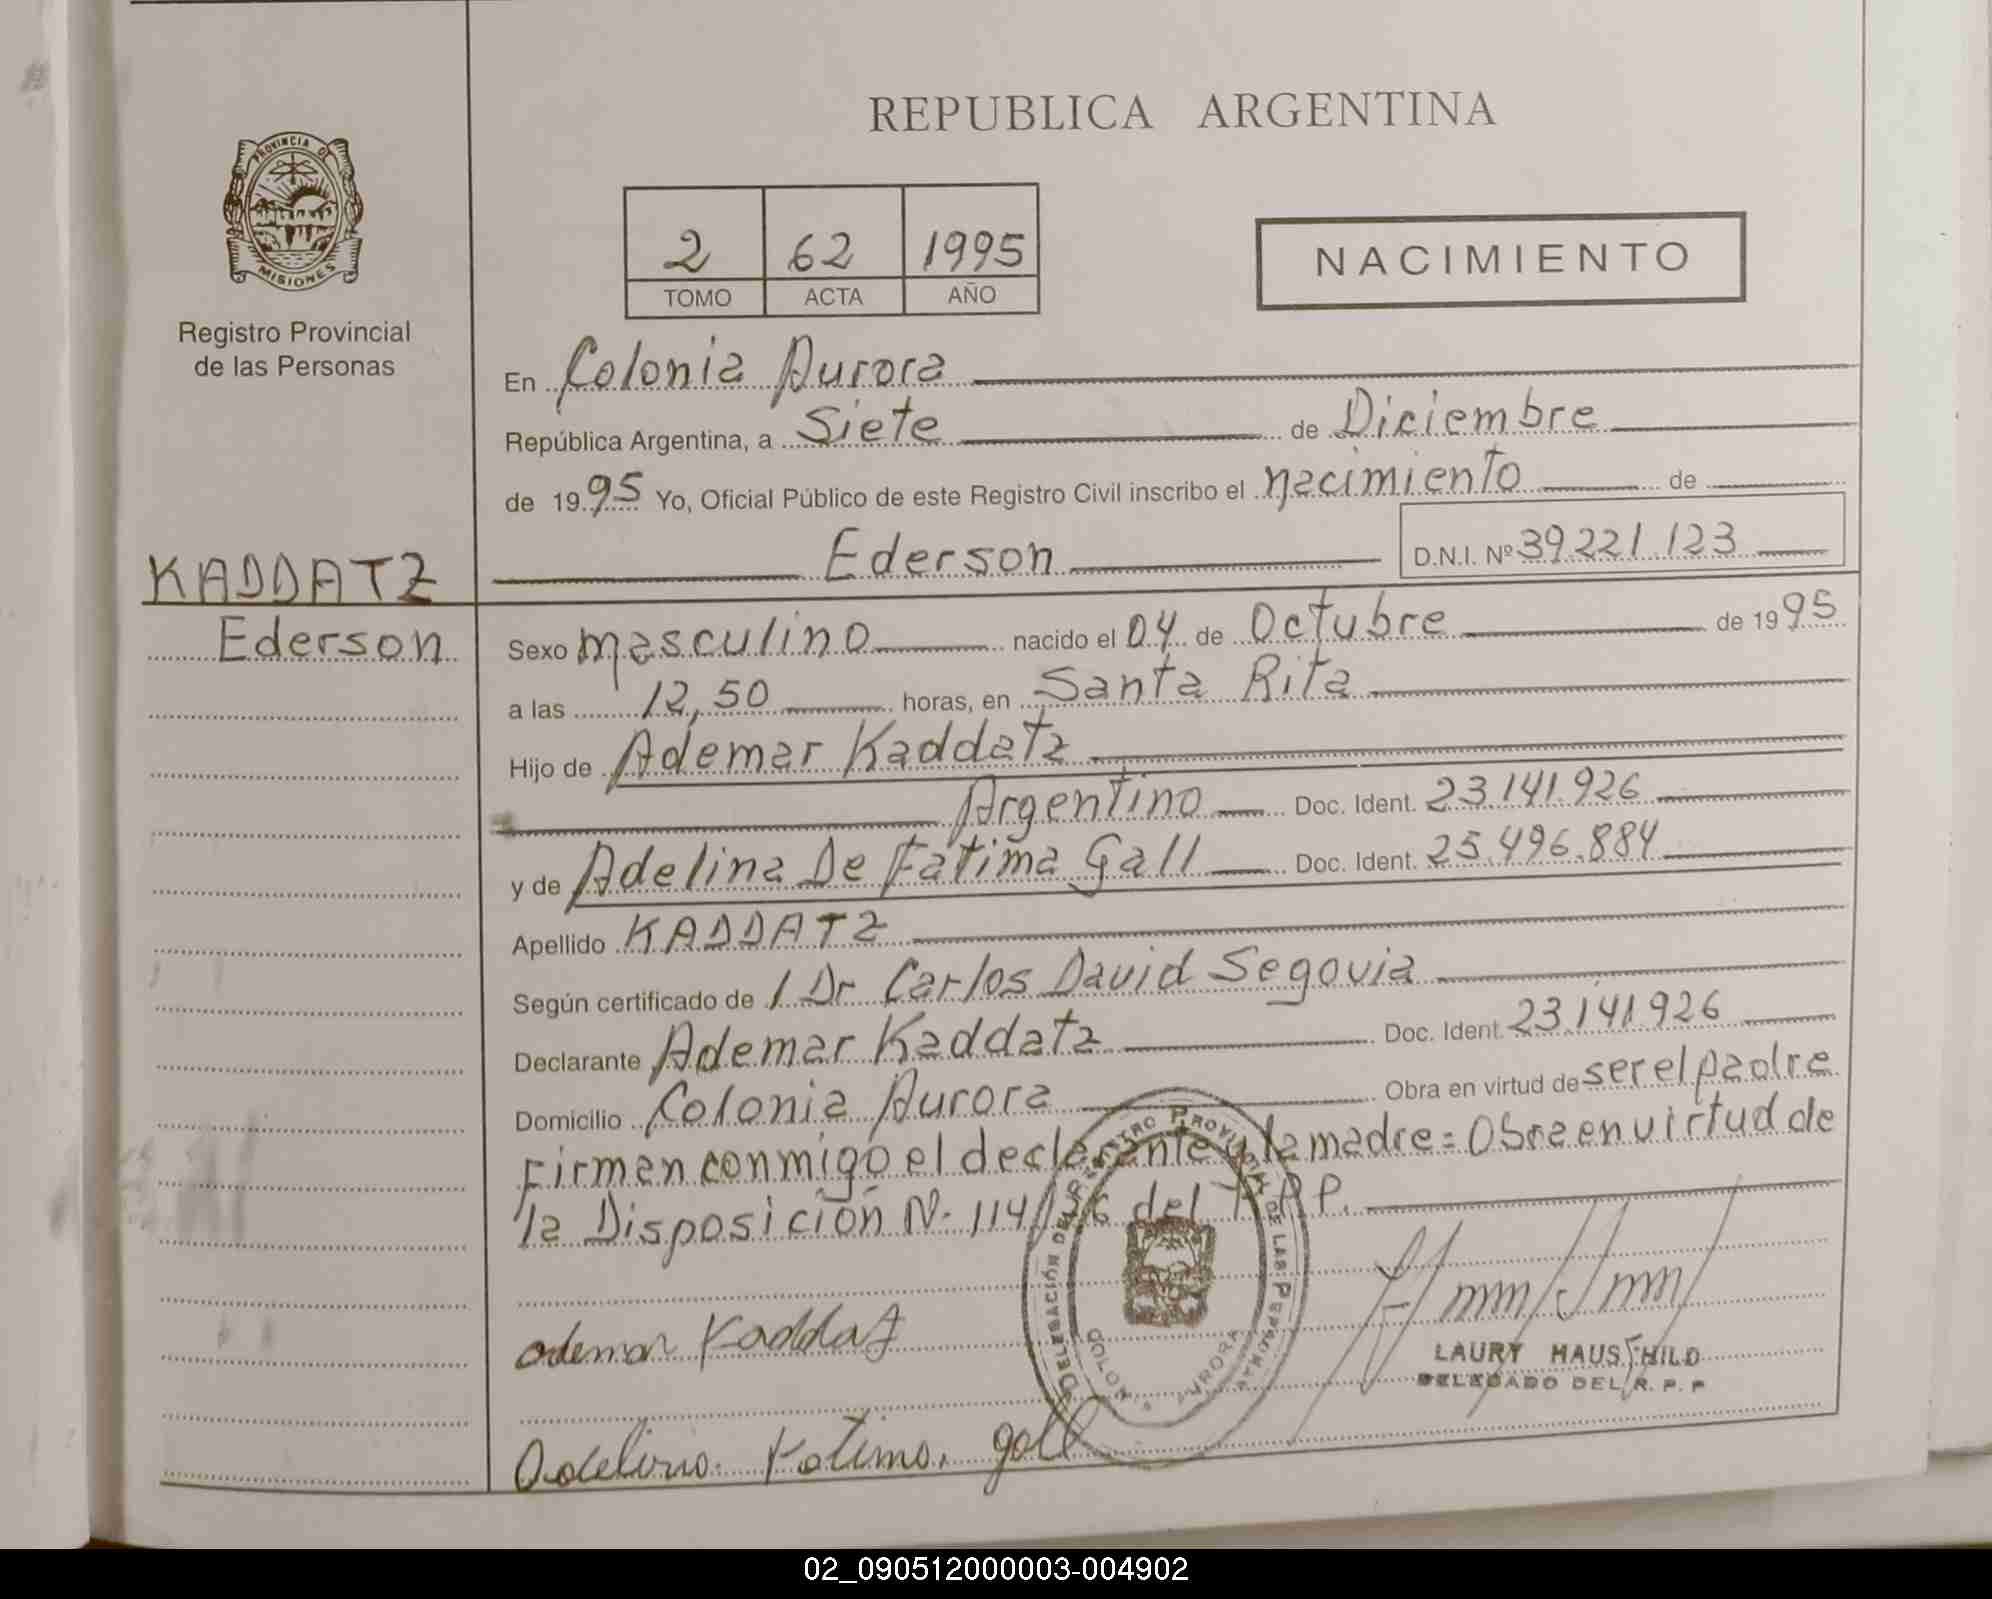 REPUBLICA ARGENTINA
PROVINCIA DE
MISIONES
Registro Provincial
de las Personas
2 62 1995
TOMO ACTA AÑO
NACIMIENTO
En Colonia Aurora
República Argentina, a Siete de Diciembre
de 1995 Yo, Oficial Público de este Registro Civil inscribo el nacimiento de
Ederson D.N.I. Nº 39.221.123
KADDATZ
Ederson
Sexo masculino nacido el 04 de Octubre de 1995
a las 12,50 horas, en Santa Rita
Hijo de Ademar Kaddatz
Argentino Doc. Ident. 23.141.926
y de Adelina De Fatima Gall Doc. Ident. 25.496.884
Apellido KADDATZ
Según certificado de / Dr Carlos David Segovia
Declarante Ademar Kaddatz Doc. Ident. 23.141.926
Domicilio Colonia Aurora Obra en virtud de ser el padre
Firman conmigo el declarante y la madre = Obra en virtud de
la Disposición N- 114/ del P.P.
DELEGACIÓN DEL REGISTRO PROVINCIAL DE LAS PERSONAS
COLONIA AURORA
ademar Kaddatz
LAURY HAUSCHILD
DELEGADO DEL R. P. P
Adelina Fatima. gall
02_090512000003-004902